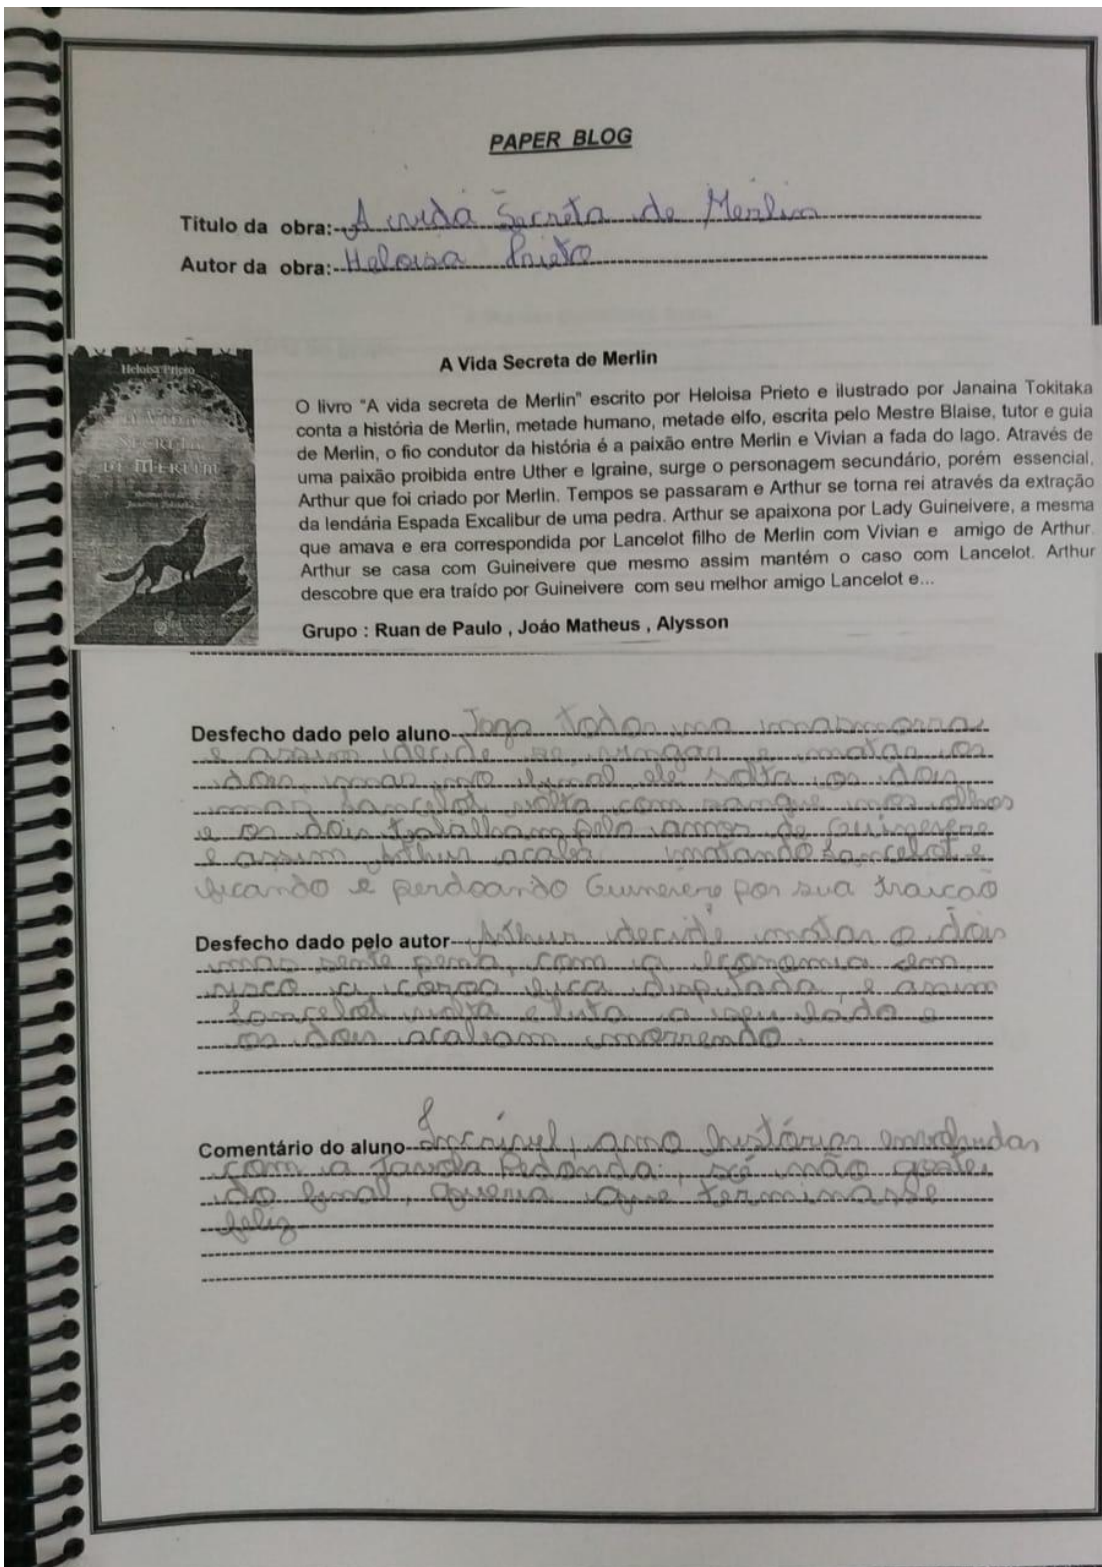 PAPER BLOG
Titulo da obra: A vida Secreta de Merlin
Autor da obra: Heloisa Prieto
Heloisa Prieto
A VIDA
SECRETA
DE MERLIN
A Vida Secreta de Merlin
O livro "A vida secreta de Merlin" escrito por Heloisa Prieto e ilustrado por Janaina Tokitaka
conta a história de Merlin, metade humano, metade elfo, escrita pelo Mestre Blaise, tutor e guia
de Merlin, o fio condutor da história é a paixão entre Merlin e Vivian a fada do lago. Através de
uma paixão proibida entre Uther e Igraine, surge o personagem secundário, porém essencial,
Arthur que foi criado por Merlin. Tempos se passaram e Arthur se torna rei através da extração
da lendária Espada Excalibur de uma pedra. Arthur se apaixona por Lady Guineivere, a mesma
que amava e era correspondida por Lancelot filho de Merlin com Vivian e amigo de Arthur.
Arthur se casa com Guineivere que mesmo assim mantém o caso com Lancelot. Arthur
descobre que era traído por Guineivere com seu melhor amigo Lancelot e...
Grupo : Ruan de Paulo , João Matheus , Alysson
Desfecho dado pelo aluno Joga todos na masmorra
e assim decide se vingar e matar os
dois, mas no final ele solta os dois
mas Lancelot volta com sangue nos olhos
e os dois batalham pelo amor de
e assim Arthur acaba matando Lancelot e
ficando e perdoando por sua traicao
Desfecho dado pelo autor Arthur decide matar o dois
mas sente pena, com a economia em
risco a coroa fica disputada e assim
Lancelot volta e luta a seu lado e
os dois acabam morrendo.
Comentário do aluno Incrível, amo histórias envolvidas
com a Tavola Redonda, só não gostei
do final, queria que terminasse
feliz